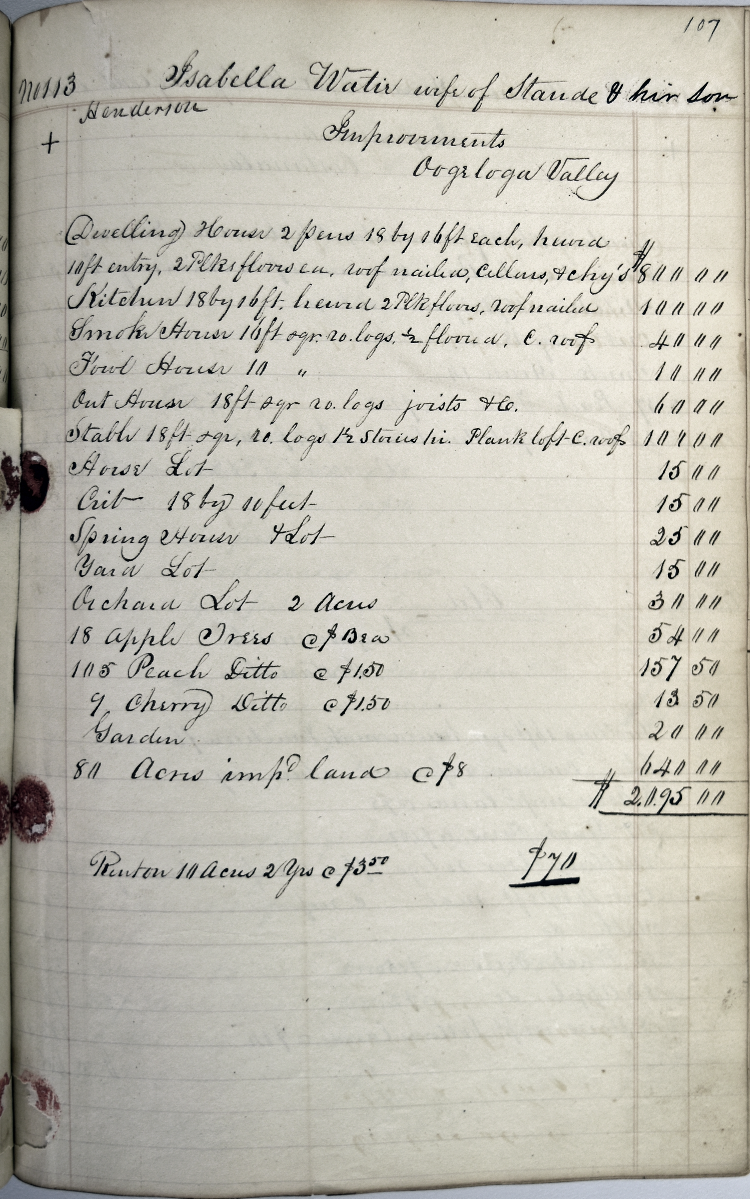 107
No 113 Isabella Watie wife of Stande & her son
Henderson
+ Improvements
Oogeloga Valley
(Dwelling) House 2 pens 18 by 16 ft each, hewed
10 ft entry, 2 Plk floors ea, roof nailed, Cellars, & chy's $ 800 00
Kitchen 18 by 16 ft. hewed 2 Plk floors, roof nailed 100 00
Smoke House 16 ft sqr. ro. logs. ½ floored, C. roof 40 00
Fowl House 10 " 10 00
Out House 18 ft sqr ro. logs joists &c. 60 00
Stable 18 ft sqr, ro. logs 1½ Stories hi. Plank loft C. roof 100 00
Horse Lot 15 00
Crib 18 by 10 feet 15 00
Spring House & Lot 25 00
Yard Lot 15 00
Orchard Lot 2 Acres 30 00
18 Apple Trees @ $3 ea 54 00
105 Peach Ditto @ $1.50 157 50
9 Cherry Ditto @ $1.50 13 50
Garden 20 00
80 Acres imp.d land @ $8 640 00
$ 2.095 00
Rent on 10 Acres 2 Yrs @ $3 50 $70